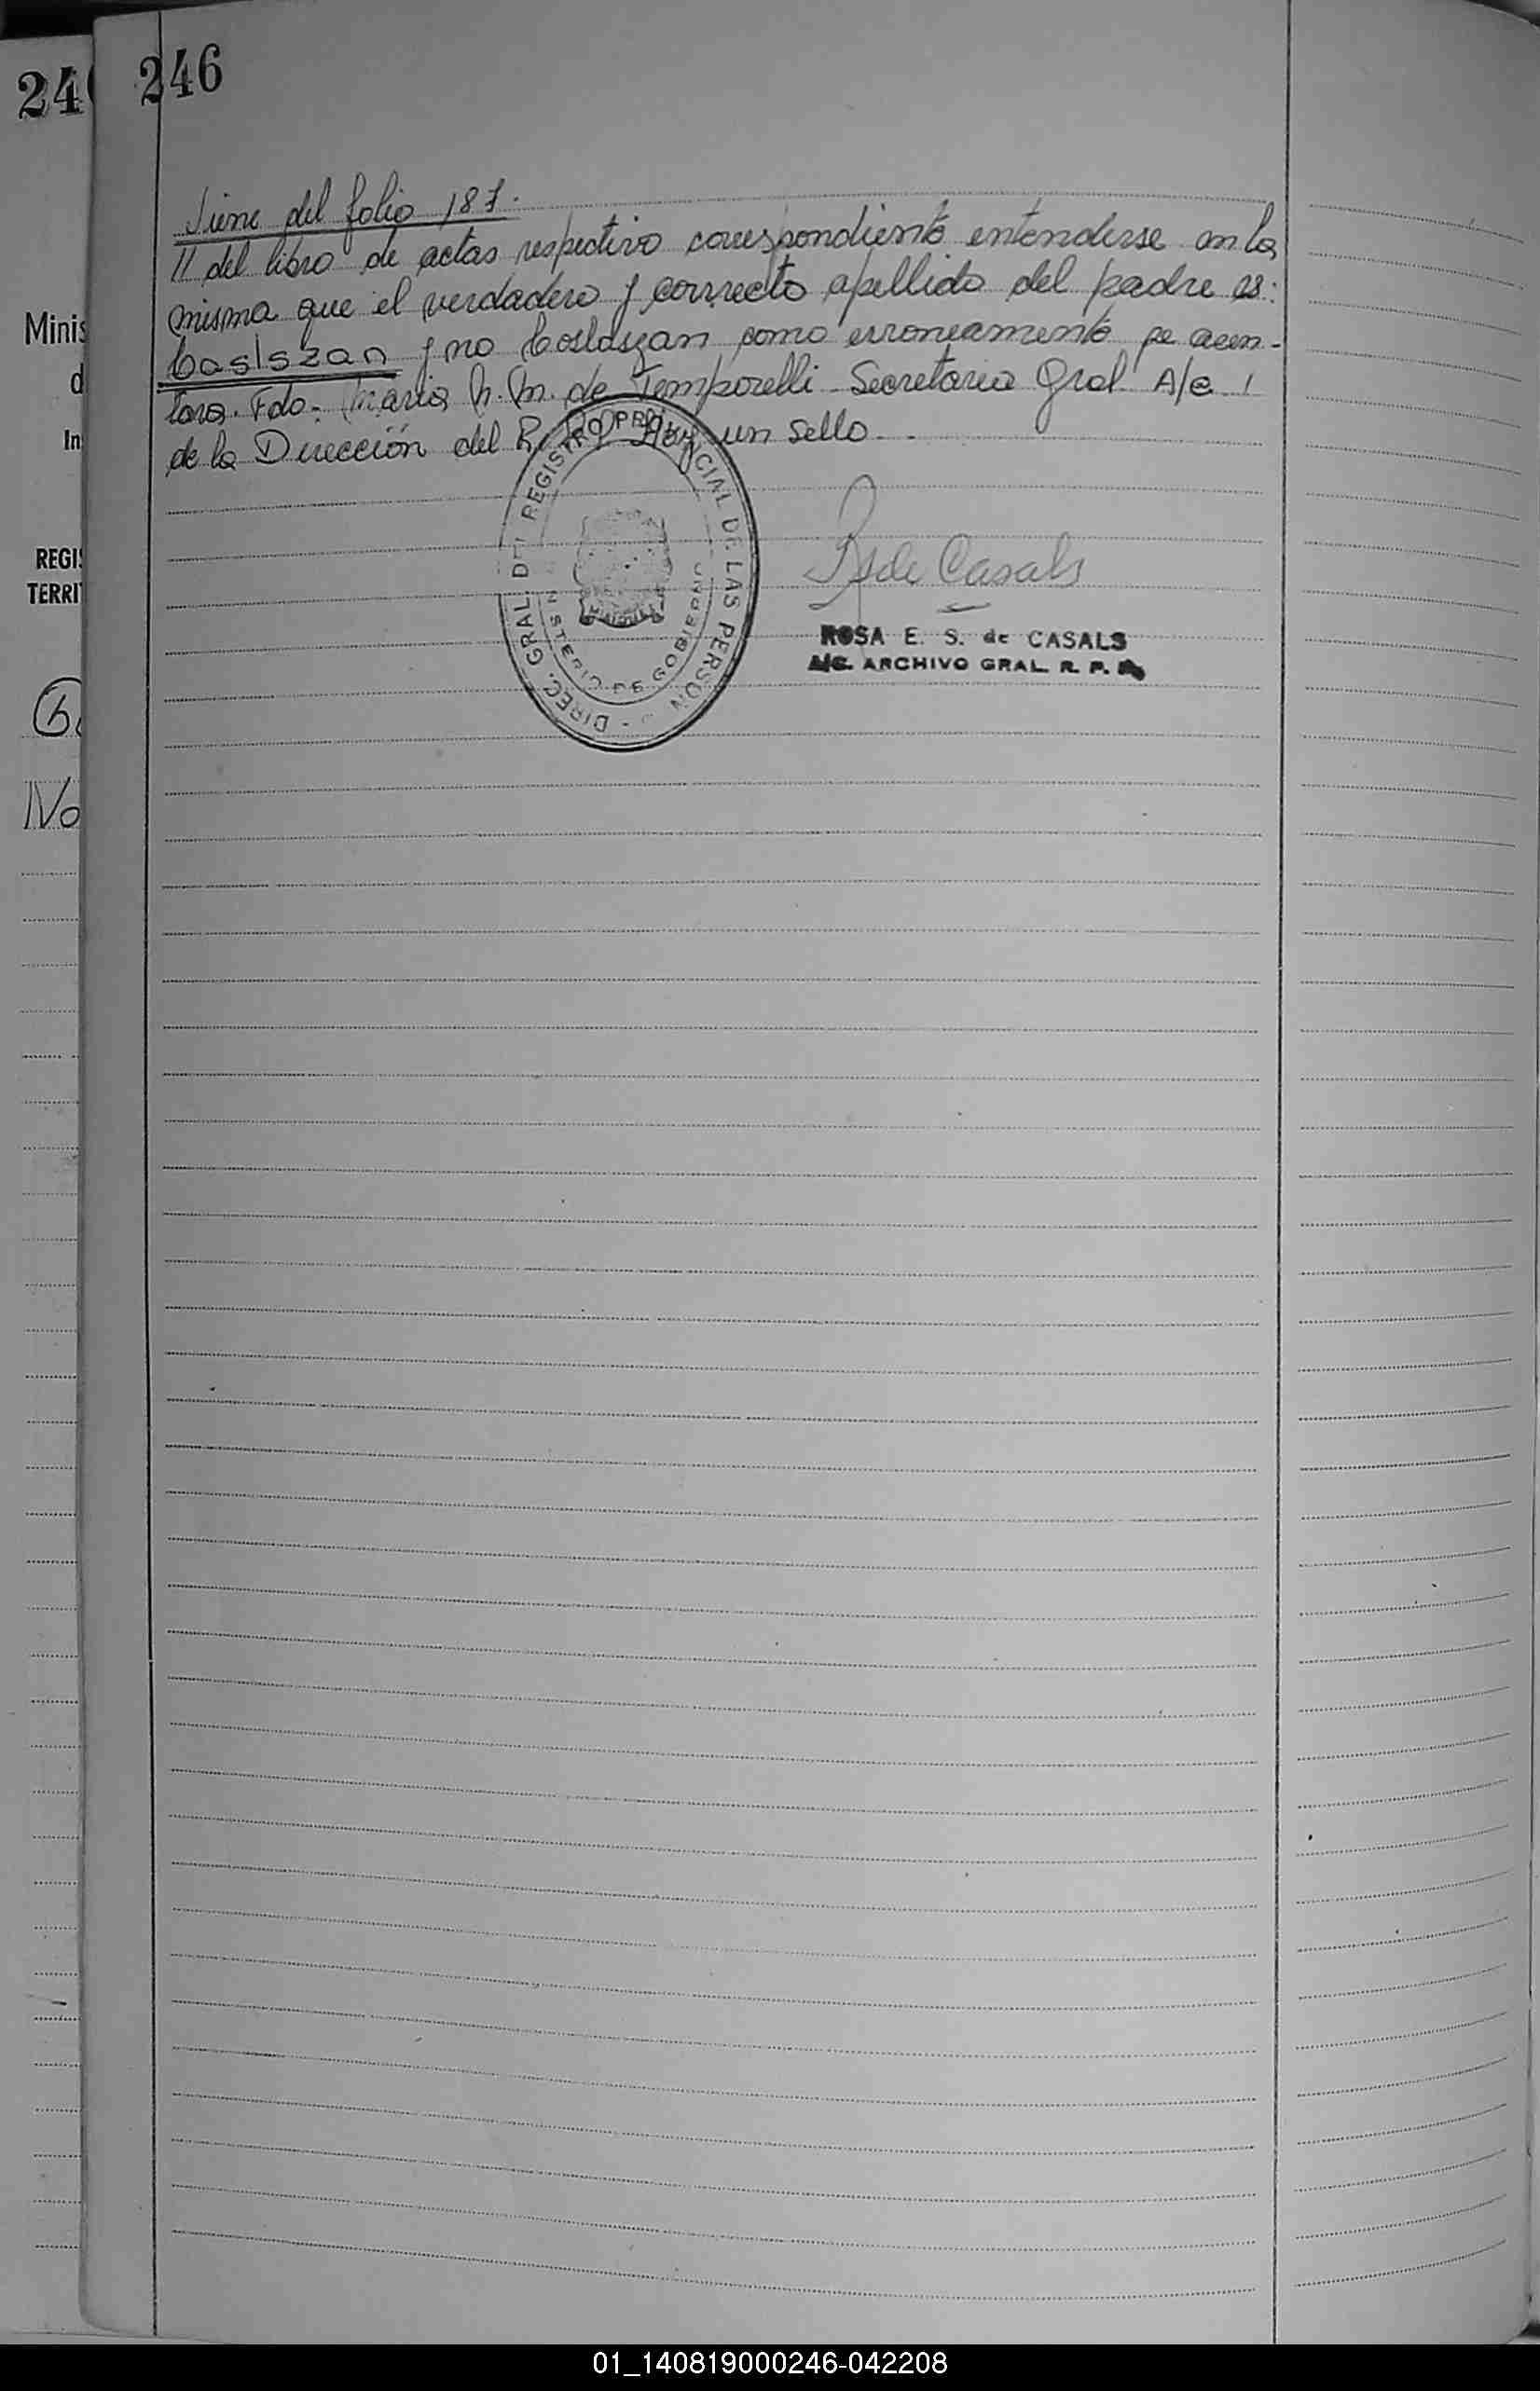 246
246
Viene del folio 187.
// del libro de actas respectivo correspondiente entenderse en la
misma que el verdadero y correcto apellido del padre es:
Casiszan y no Coslaszan como erroneamente se acen-
tara. Fdo. Maria h. m. de Temporelli Secretaria Gral A/c
de la Dirección del R. P. P. Hay un sello.
DIREC. GRAL. DEL REGISTRO PROVINCIAL DE LAS PERSON
MINISTERIO DE GOBIERNO
R S de Casals
ROSA E. S. de CASALS
A/C. ARCHIVO GRAL R. P.
Minis
d
In
REGIS
TERRI
No
01_140819000246-042208